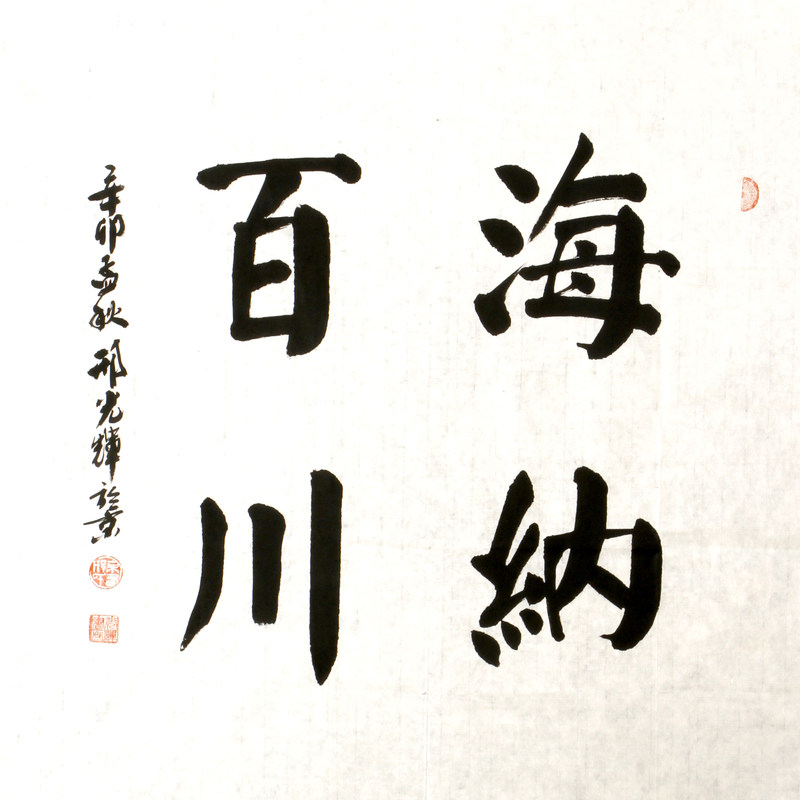 海納
百川
辛卯孟秋邢光輝於京